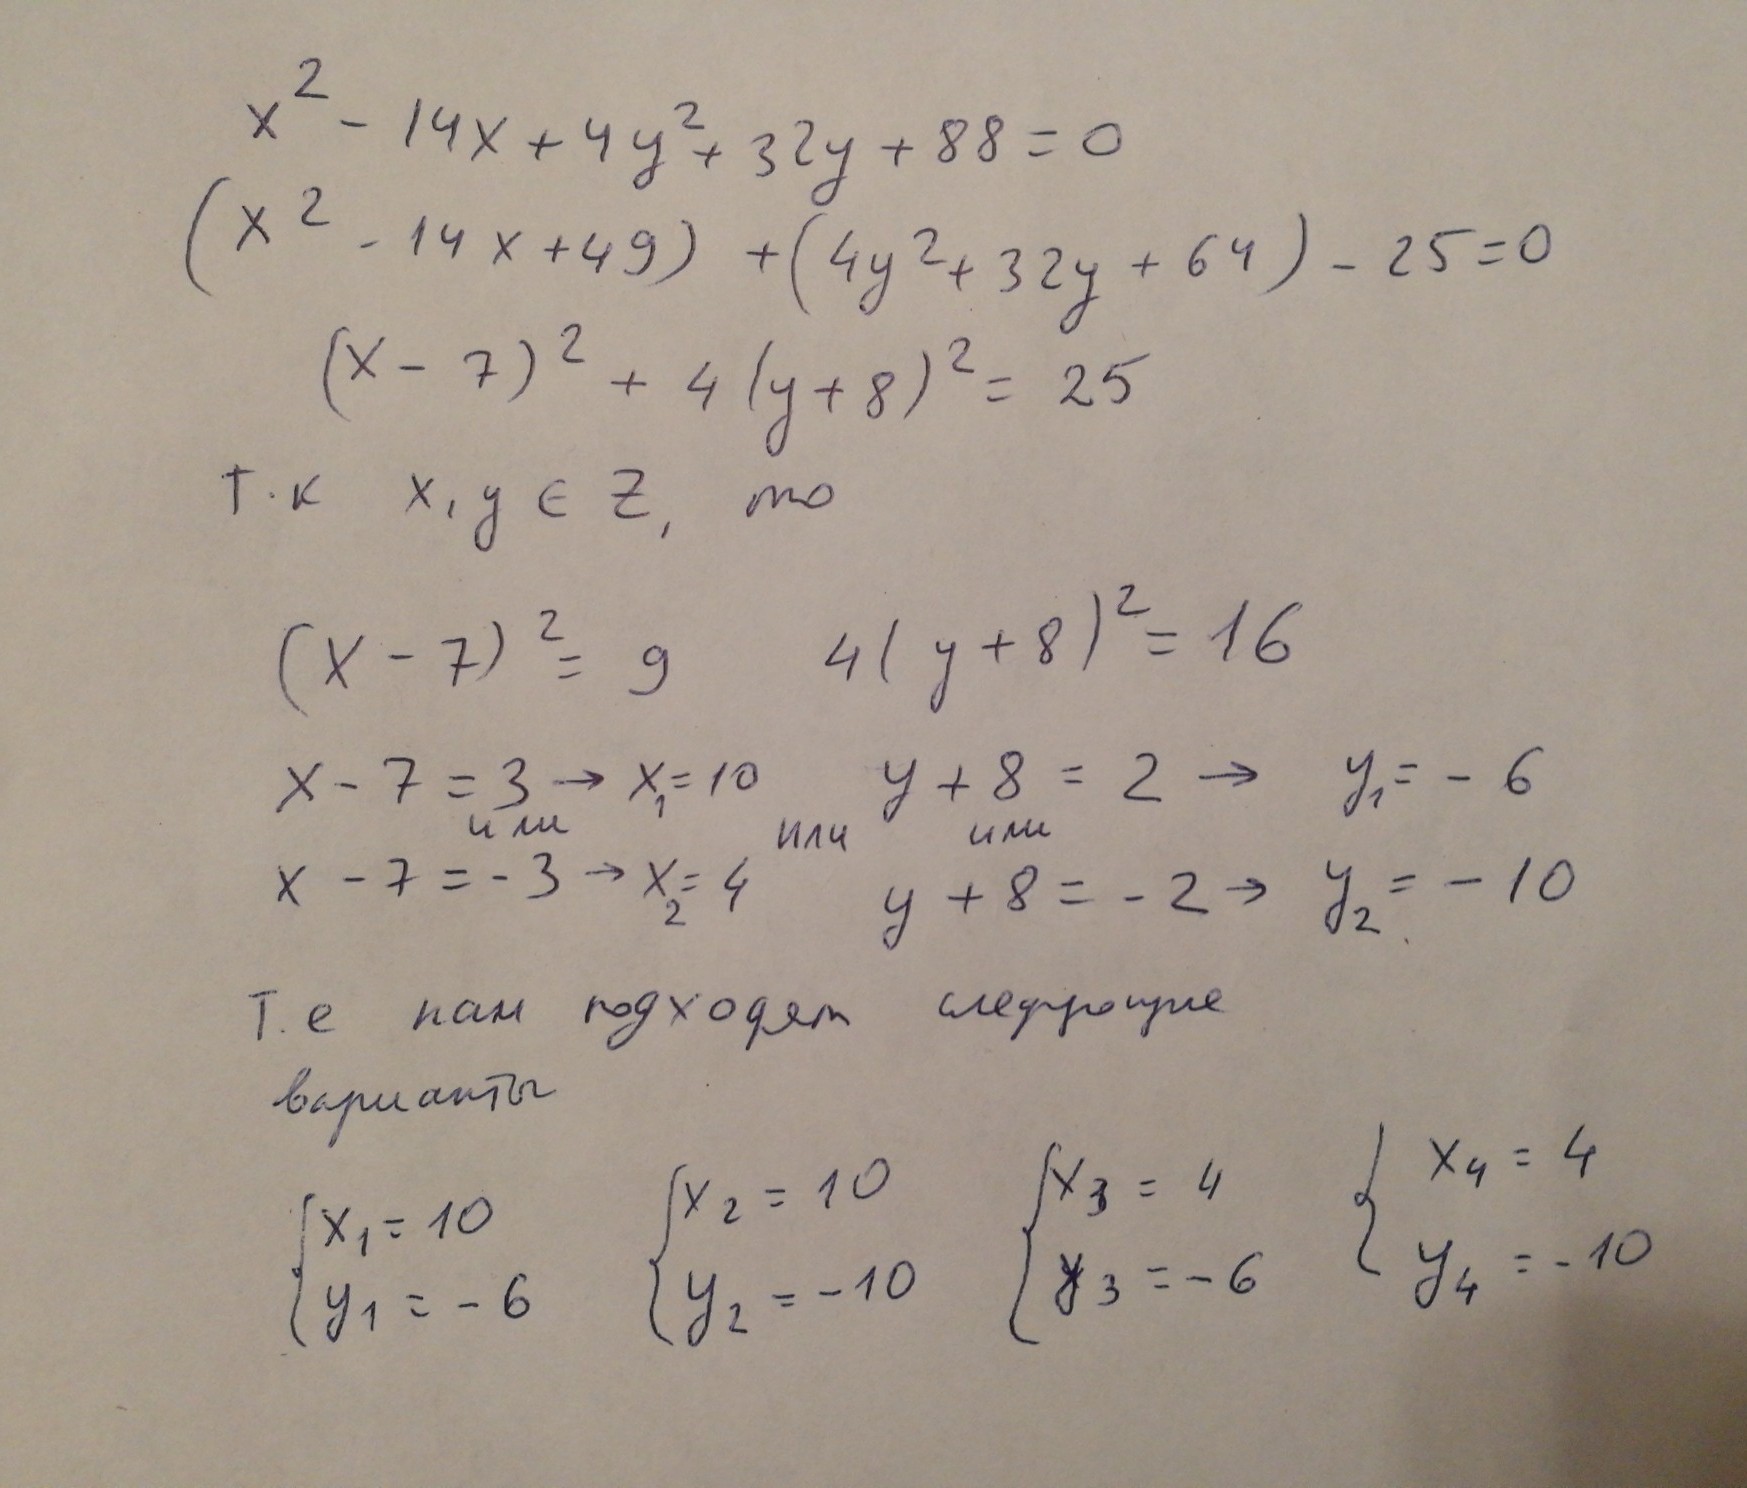 x² - 14x + 4y² + 32y + 88 = 0
(x² - 14x + 49) + (4y² + 32y + 64) - 25 = 0
(x - 7)² + 4(y + 8)² = 25
Т.к x, y ∈ Z, то
(x - 7)² = 9 4(y + 8)² = 16
x - 7 = 3 → x₁ = 10 y + 8 = 2 → y₁ = - 6
или или или
x - 7 = - 3 → x₂ = 4 y + 8 = - 2 → y₂ = - 10
Т.е нам подходят следующие
варианты
{ x₁ = 10 { x₂ = 10 { x₃ = 4 { x₄ = 4
y₁ = - 6 y₂ = - 10 y₃ = - 6 y₄ = - 10